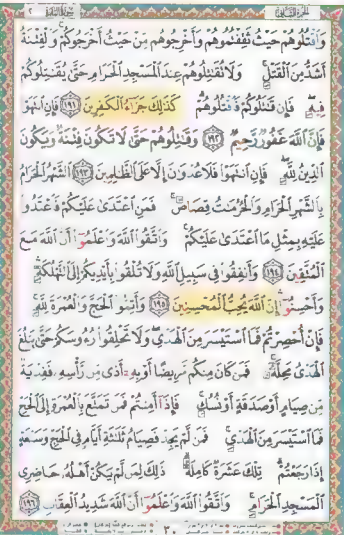 الجزء الثاني سورة البقرة ٢
وَاقْتُلُوهُمْ حَيْثُ ثَقِفْتُمُوهُمْ وَأَخْرِجُوهُم مِّنْ حَيْثُ أَخْرَجُوكُمْ وَالْفِتْنَةُ
أَشَدُّ مِنَ الْقَتْلِ وَلَا تُقَاتِلُوهُمْ عِندَ الْمَسْجِدِ الْحَرَامِ حَتَّى يُقَاتِلُوكُمْ
فِيهِ فَإِن قَاتَلُوكُمْ فَاقْتُلُوهُمْ كَذَٰلِكَ جَزَاءُ الْكَافِرِينَ ١٩١ فَإِنِ انتَهَوْا
فَإِنَّ اللَّهَ غَفُورٌ رَّحِيمٌ ١٩٢ وَقَاتِلُوهُمْ حَتَّى لَا تَكُونَ فِتْنَةٌ وَيَكُونَ
الدِّينُ لِلَّهِ فَإِنِ انتَهَوْا فَلَا عُدْوَانَ إِلَّا عَلَى الظَّالِمِينَ ١٩٣ الشَّهْرُ الْحَرَامُ
بِالشَّهْرِ الْحَرَامِ وَالْحُرُمَاتُ قِصَاصٌ فَمَنِ اعْتَدَى عَلَيْكُمْ فَاعْتَدُوا
عَلَيْهِ بِمِثْلِ مَا اعْتَدَى عَلَيْكُمْ وَاتَّقُوا اللَّهَ وَاعْلَمُوا أَنَّ اللَّهَ مَعَ
الْمُتَّقِينَ ١٩٤ وَأَنفِقُوا فِي سَبِيلِ اللَّهِ وَلَا تُلْقُوا بِأَيْدِيكُمْ إِلَى التَّهْلُكَةِ
وَأَحْسِنُوا إِنَّ اللَّهَ يُحِبُّ الْمُحْسِنِينَ ١٩٥ وَأَتِمُّوا الْحَجَّ وَالْعُمْرَةَ لِلَّهِ
فَإِنْ أُحْصِرْتُمْ فَمَا اسْتَيْسَرَ مِنَ الْهَدْيِ وَلَا تَحْلِقُوا رُءُوسَكُمْ حَتَّى يَبْلُغَ
الْهَدْيُ مَحِلَّهُ فَمَن كَانَ مِنكُم مَّرِيضًا أَوْ بِهِ أَذًى مِّن رَّأْسِهِ فَفِدْيَةٌ
مِّن صِيَامٍ أَوْ صَدَقَةٍ أَوْ نُسُكٍ فَإِذَا أَمِنتُمْ فَمَن تَمَتَّعَ بِالْعُمْرَةِ إِلَى الْحَجِّ
فَمَا اسْتَيْسَرَ مِنَ الْهَدْيِ فَمَن لَّمْ يَجِدْ فَصِيَامُ ثَلَاثَةِ أَيَّامٍ فِي الْحَجِّ وَسَبْعَةٍ
إِذَا رَجَعْتُمْ تِلْكَ عَشَرَةٌ كَامِلَةٌ ذَٰلِكَ لِمَن لَّمْ يَكُنْ أَهْلُهُ حَاضِرِي
الْمَسْجِدِ الْحَرَامِ وَاتَّقُوا اللَّهَ وَاعْلَمُوا أَنَّ اللَّهَ شَدِيدُ الْعِقَابِ ١٩٦
٣٠